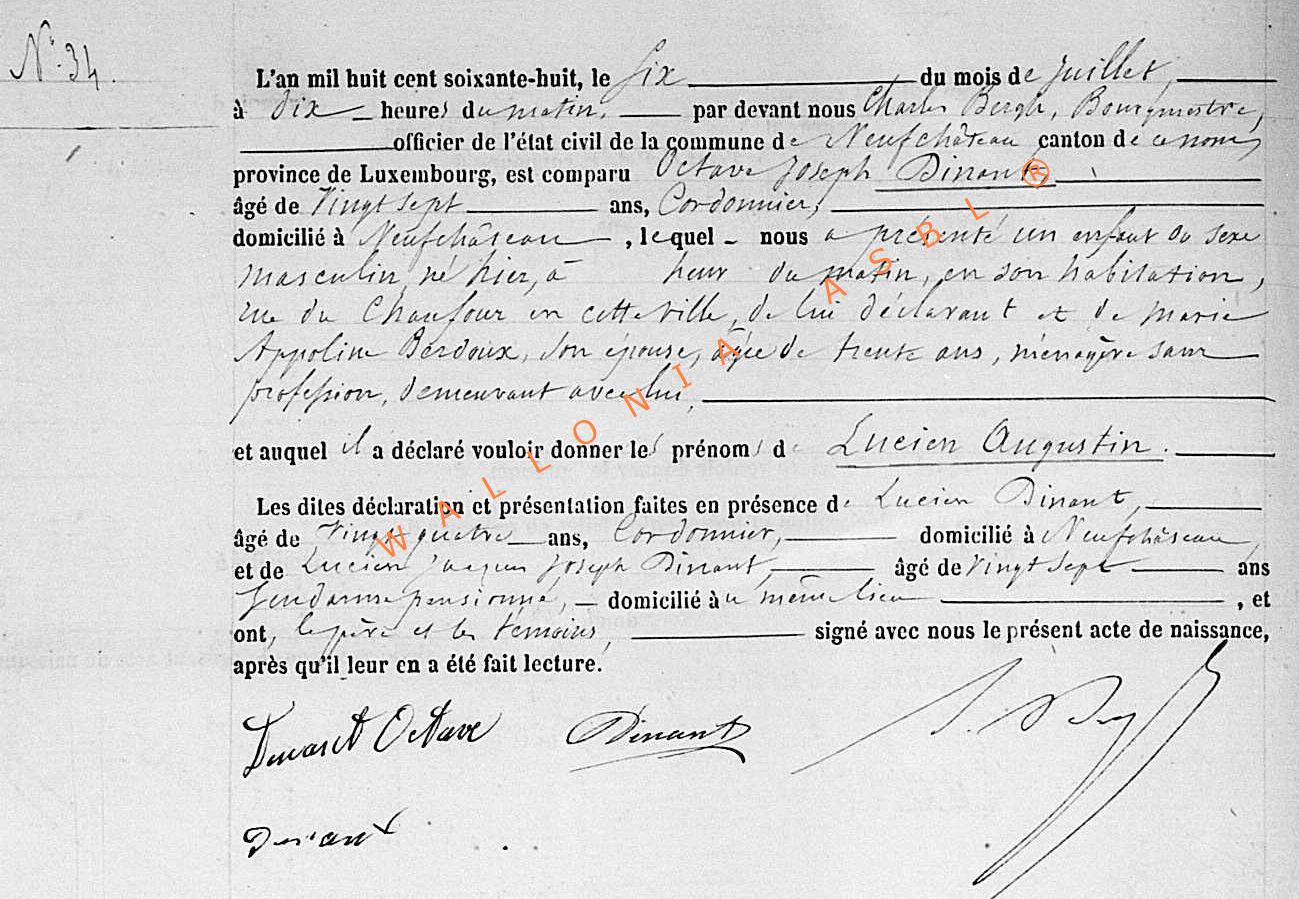 N° 34.
L'an mil huit cent soixante-huit, le six du mois de Juillet,
à dix heures du matin, par devant nous Charles Bergh, Bourgmestre,
officier de l'état civil de la commune de Neufchâteau canton de ce nom,
province de Luxembourg, est comparu Octave Joseph Dinant,
âgé de Vingt sept ans, Cordonnier,
domicilié à Neufchâteau, lequel nous a présenté un enfant du sexe
masculin, né hier, à heur du matin, en son habitation,
rue du Chaufour en cette ville, de lui déclarant et de marie
Appoline Berdoux, son épouse, âgée de trente ans, ménagère sans
profession, demeurant avec lui,
et auquel il a déclaré vouloir donner les prénoms de Lucien Augustin.
Les dites déclaration et présentation faites en présence de Lucien Dinant,
âgé de Vingt quatre ans, Cordonnier, domicilié à Neufchâteau,
et de Lucien Jacques Joseph Dinant, âgé de Vingt sept ans
Gendarme pensionné, domicilié à même lieu, et
ont, le père et les témoins, signé avec nous le présent acte de naissance,
après qu'il leur en a été fait lecture.
Octave Dinant
Dinant
WALLONIA ASBL ®